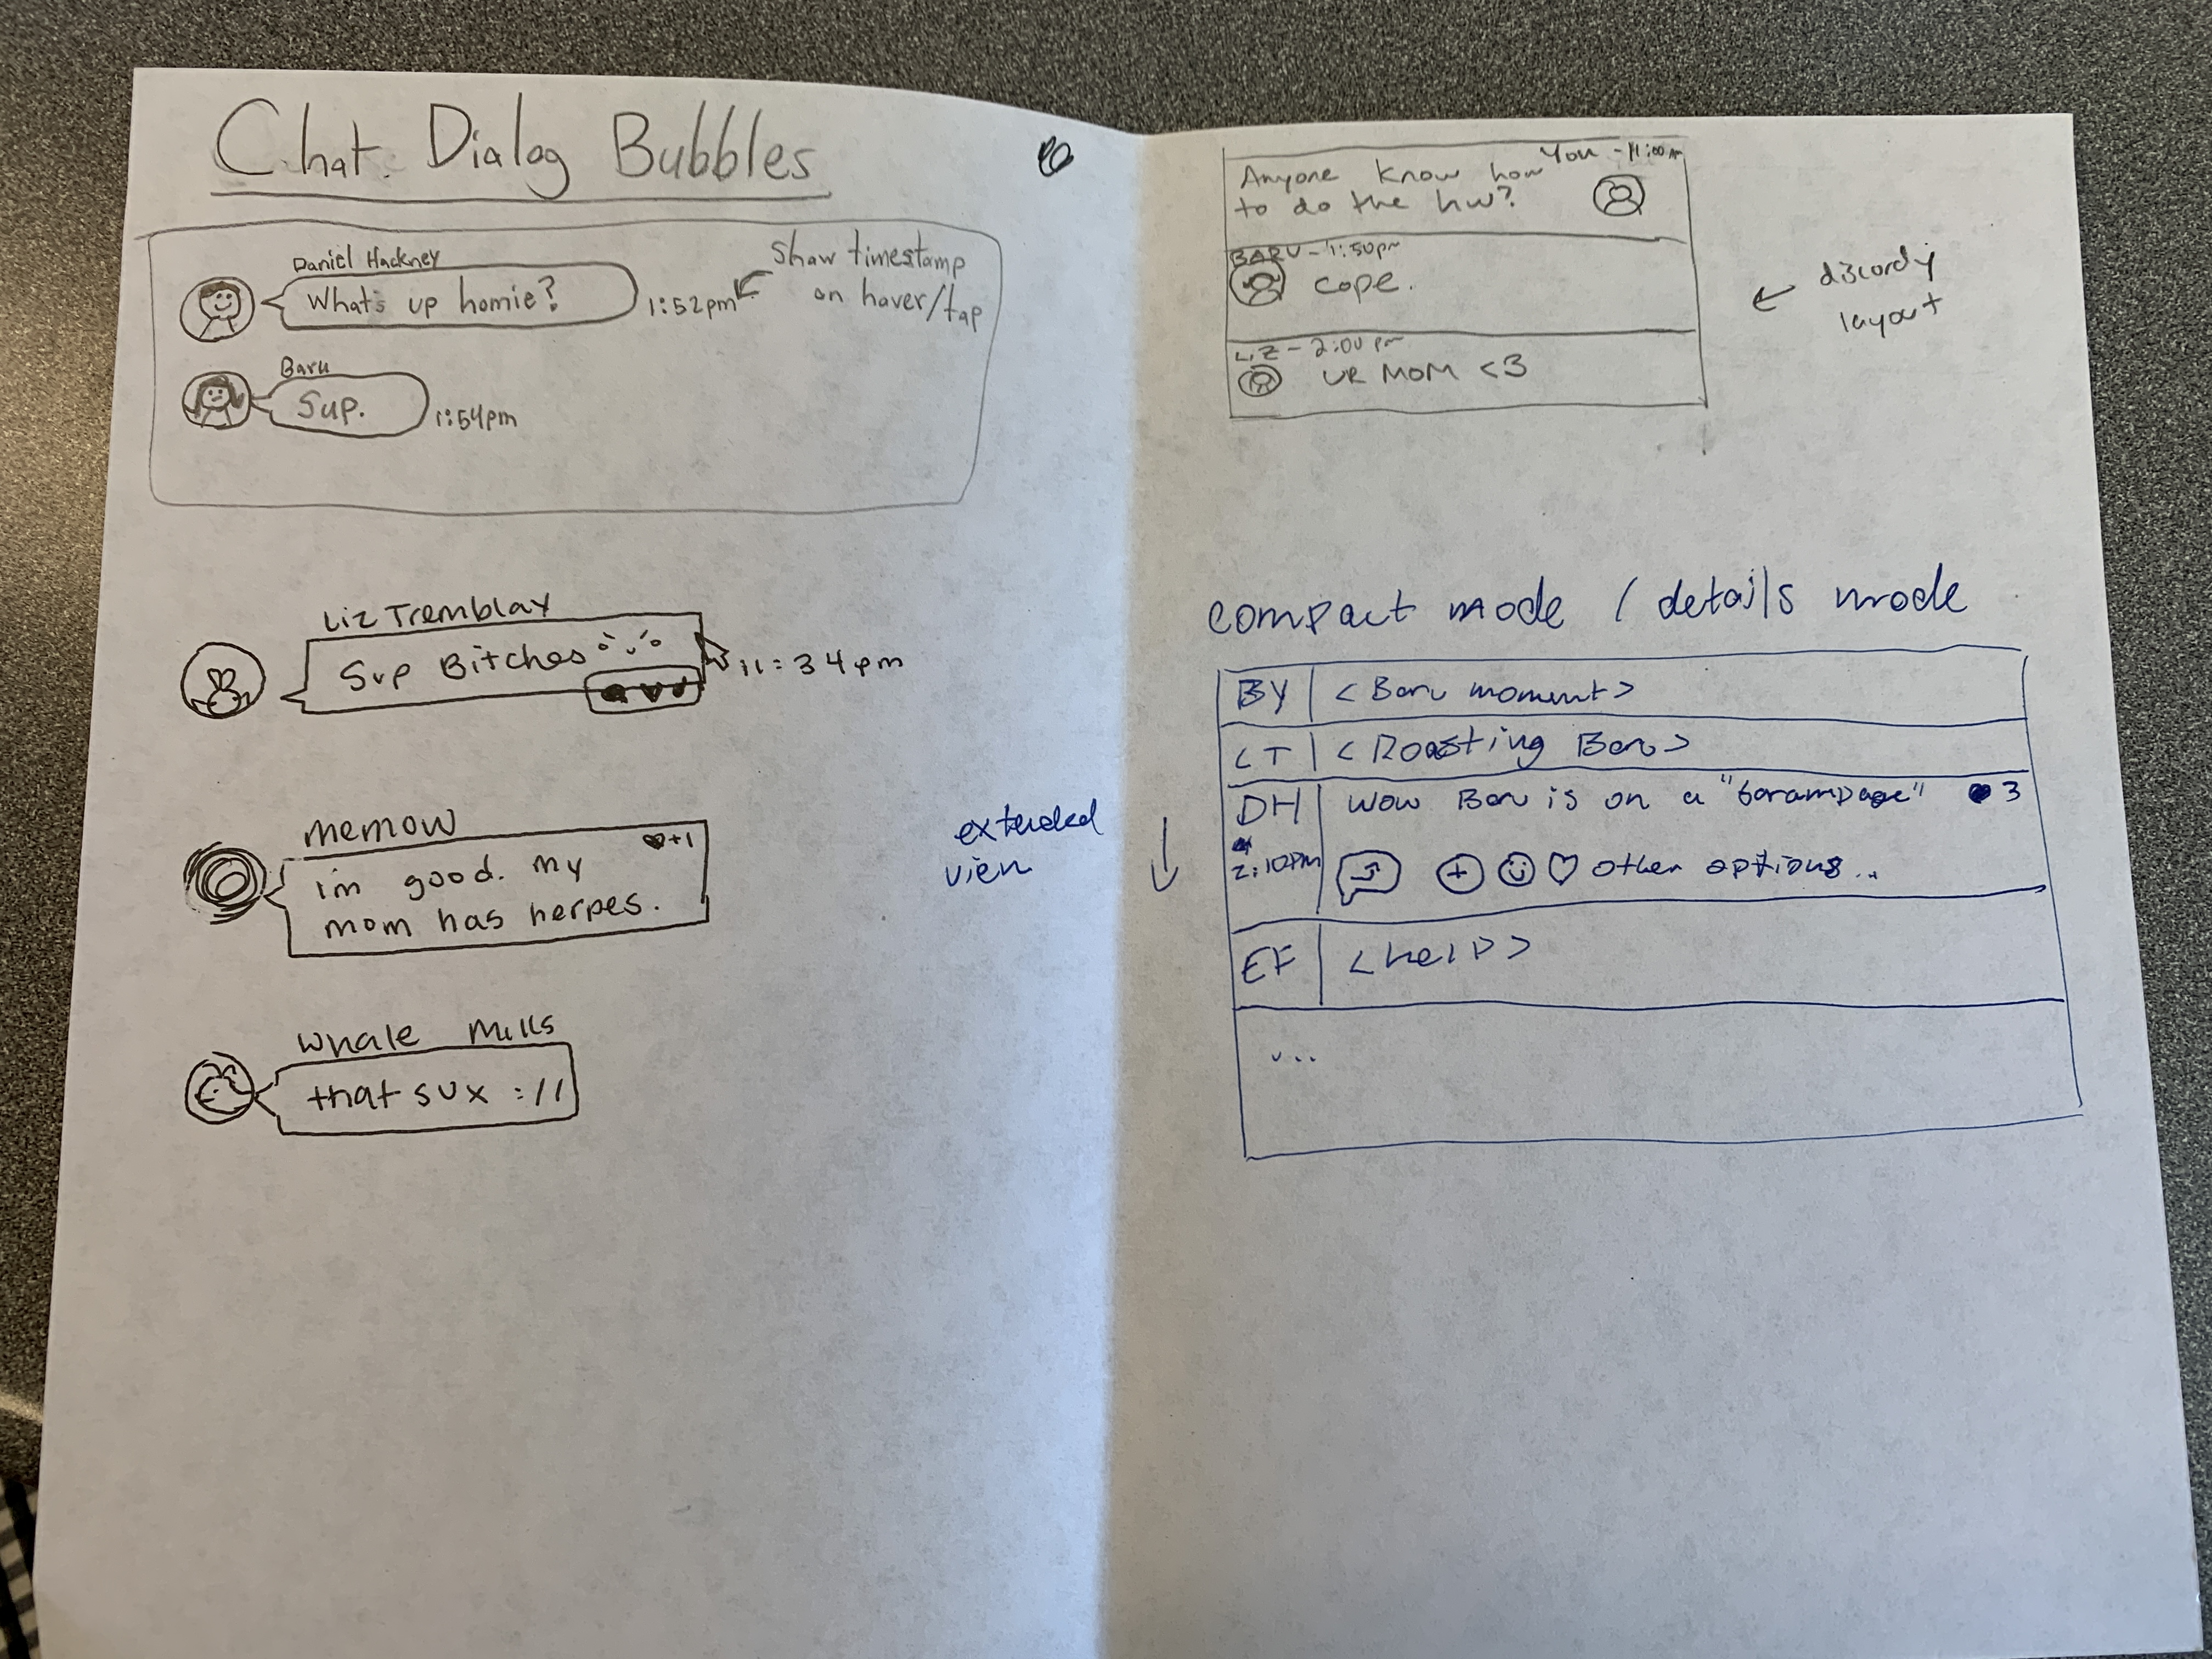 Chat Dialog Bubbles
Daniel Hackney
What's up homie?
1:52pm
Show timestamp
on hover/tap
Baru
Sup.
1:54pm
Liz Tremblay
Sup Bitches
11:34pm
memow
♥+1
im good. my
mom has herpes.
whale Mills
that sux ://
You - 11:00 AM
Anyone know how
to do the hw?
BARU - 1:50pm
cope.
LIZ - 2:00 pm
UR MOM <3
← discordy
layout
compact mode / details mode
BY <Baru moment>
LT <Roasting Baru>
DH Wow Baru is on a "barampage" ♥ 3
2:10PM other options...
extended
view
EF <help>
...